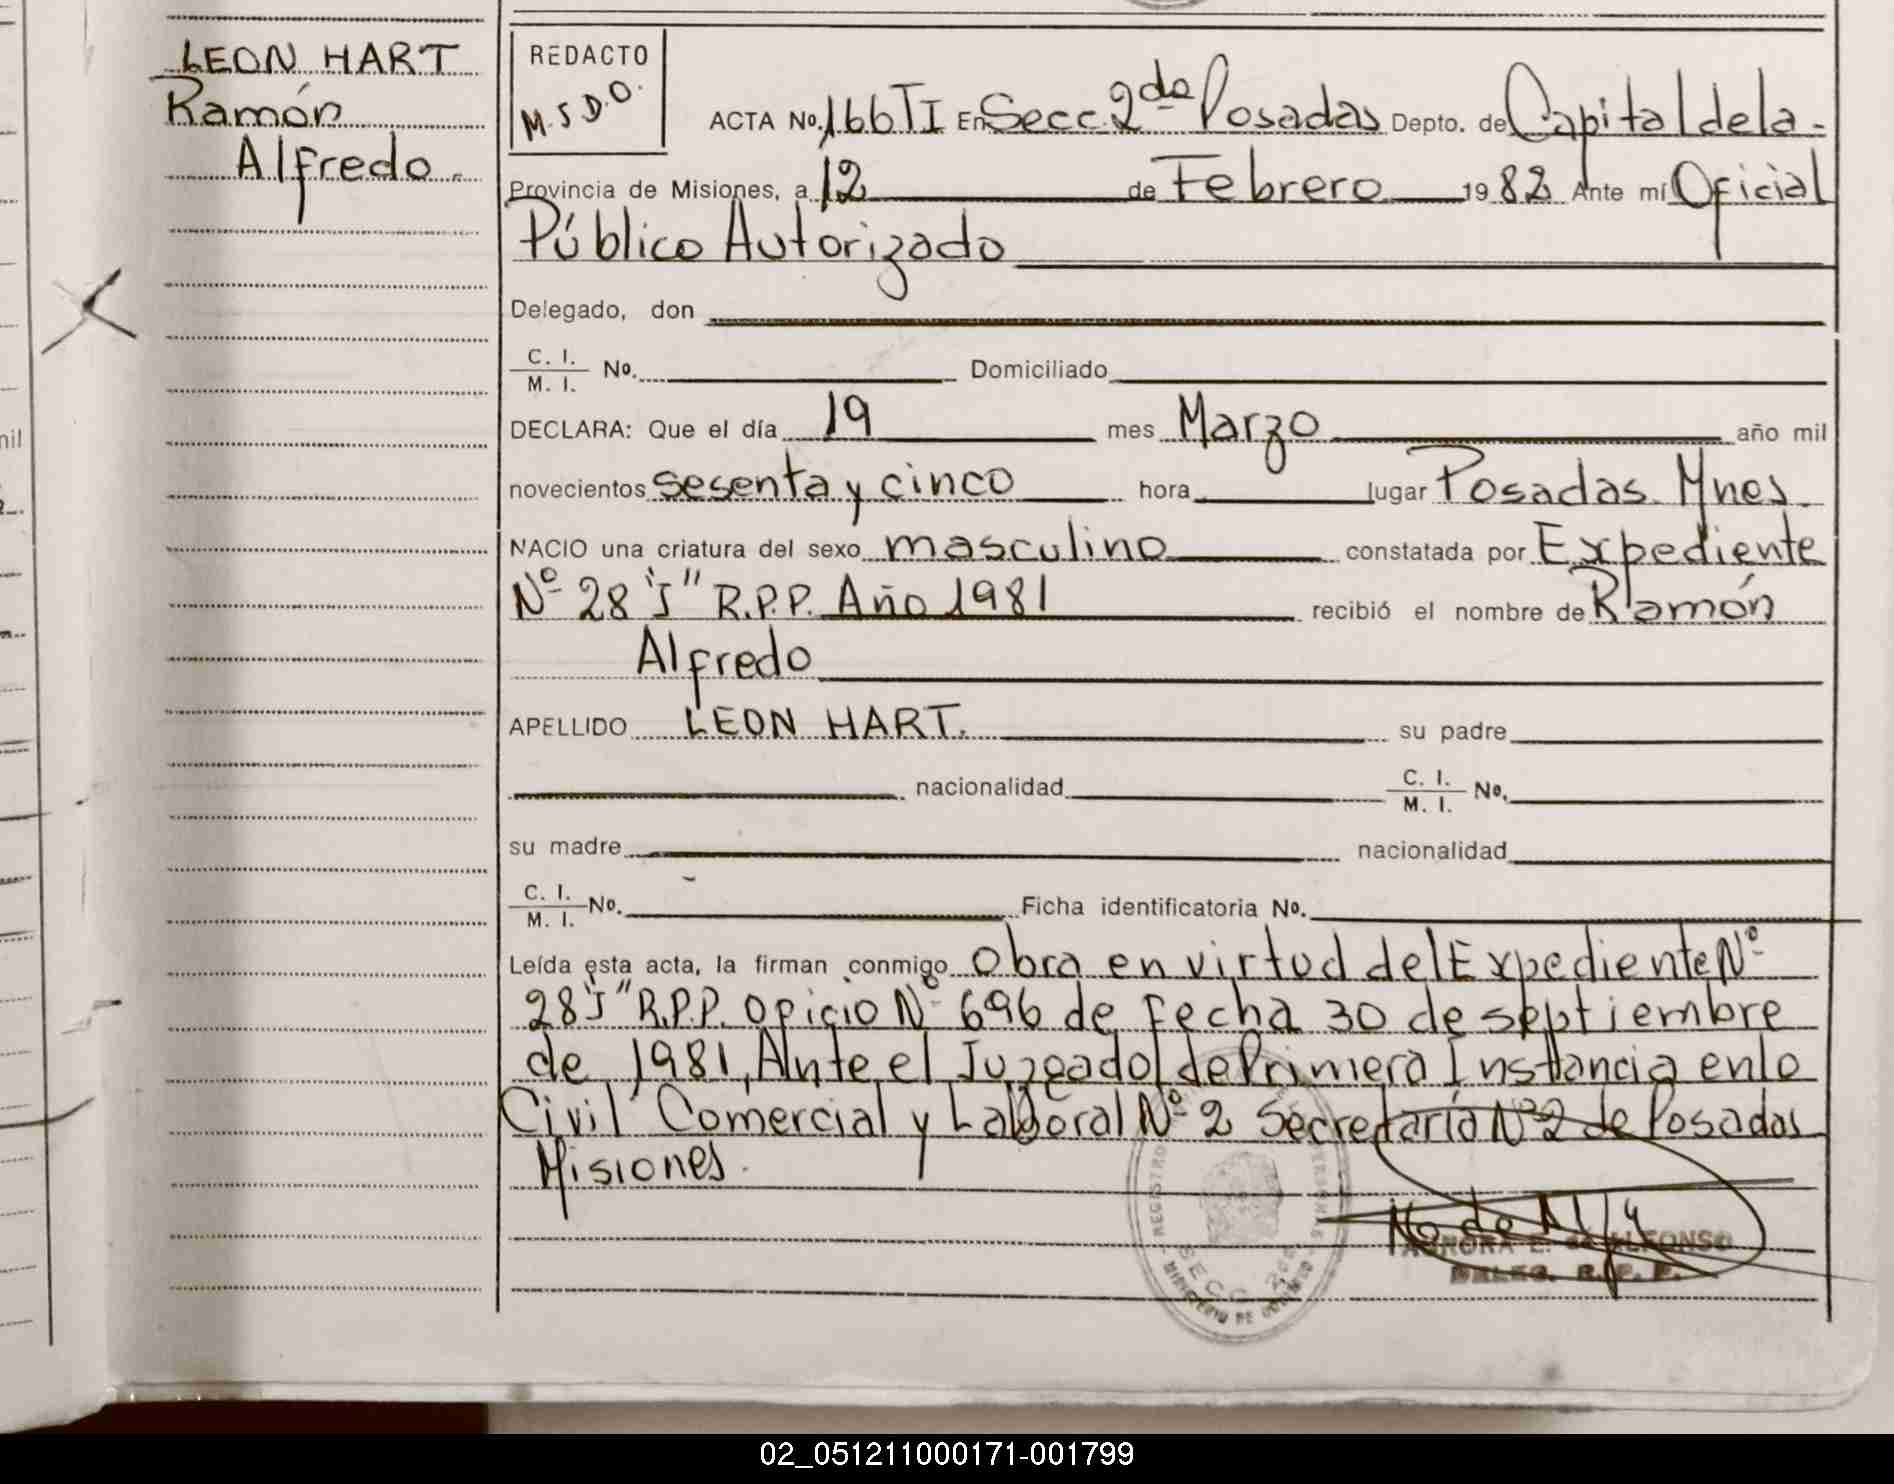 LEON HART
Ramón
Alfredo.
REDACTO
M.S.D.O.
ACTA No. 166 TI En Secc. 2da Posadas Depto. de Capital de la
Provincia de Misiones, a 12 de Febrero 1982 Ante mí Oficial
Público Autorizado
Delegado, don
C. I.
M. I. No. Domiciliado
DECLARA: Que el día 19 mes Marzo año mil
novecientos sesenta y cinco hora lugar Posadas. Mnes.
NACIO una criatura del sexo masculino constatada por Expediente
Nº 28 "J" R.P.P. Año 1981 recibió el nombre de Ramón
Alfredo
APELLIDO LEON HART. su padre
nacionalidad C. I.
M. I. No.
su madre nacionalidad
C. I.
M. I. No. Ficha identificatoria No.
Leída esta acta, la firman conmigo Obra en virtud del Expediente Nº
28 "J" R.P.P. Oficio Nº 696 de fecha 30 de septiembre
de 1981, Ante el Juzgado de Primera Instancia en lo
Civil Comercial y Laboral Nº 2 Secretaría Nº 2 de Posadas
Misiones.
AURORA E. de ALFONSO
DELEG. R. P. P.
SECC 2da
nil
02_051211000171-001799